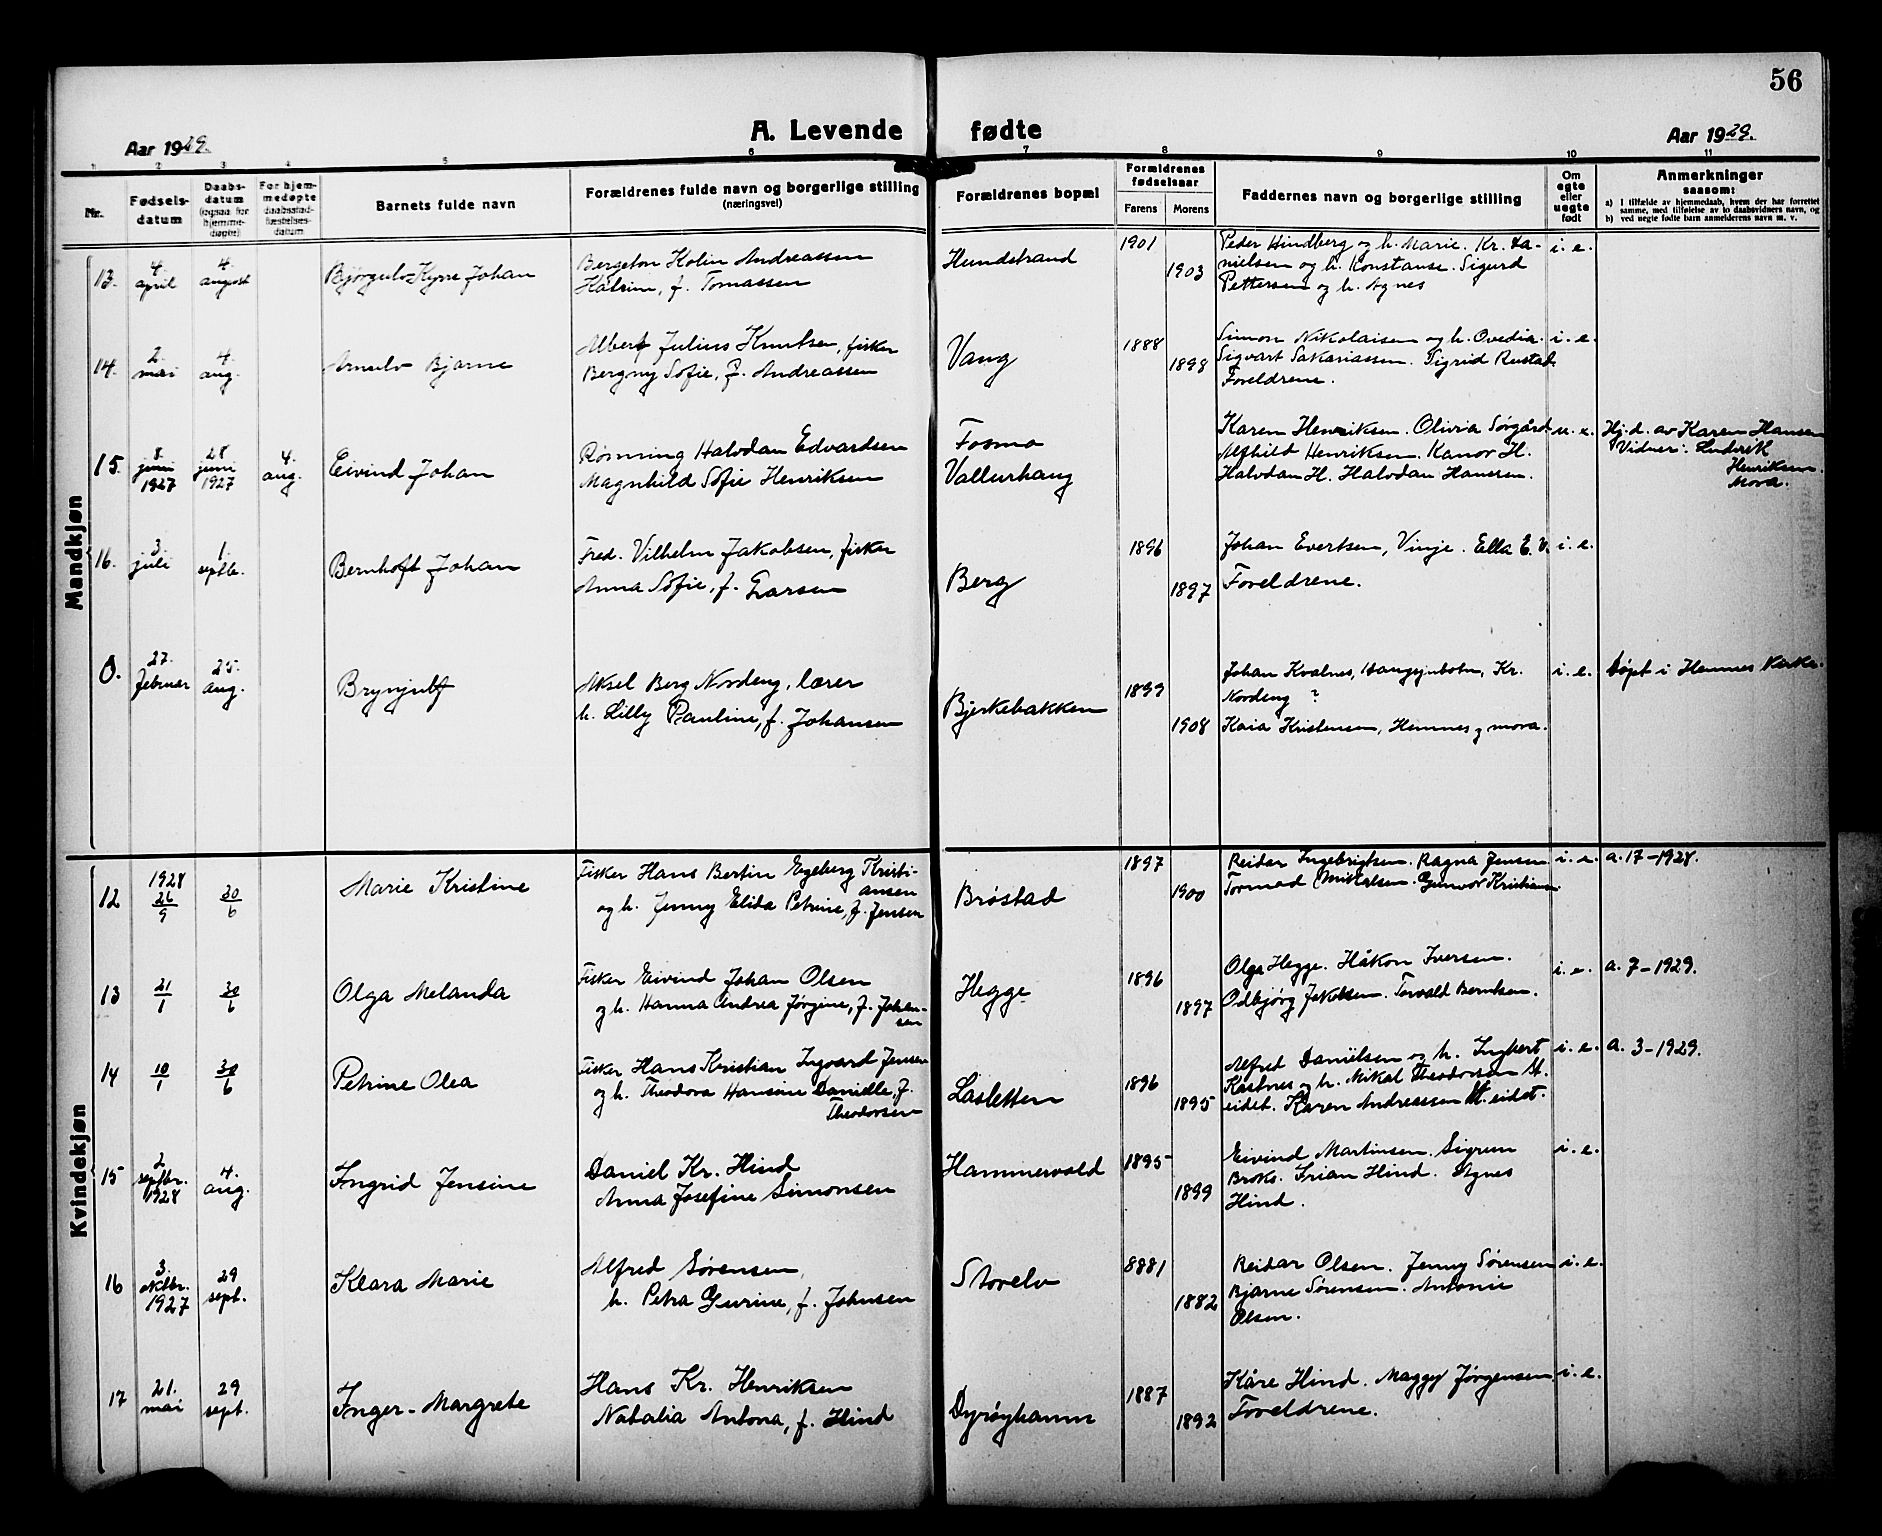 56
A. Levende fødte
Aar 1929.
Aar 1929.
1 2 3 4 5 6 7 8 9 10 11
Nr.
Fødsels-
datum
Daabs-
datum
(ogsaa for
hjemme-
døpte)
For hjem-
medøpte
daabsstad-
fæstelses-
datum
Barnets fulde navn
Forældrenes fulde navn og borgerlige stilling
(næringsvei)
Forældrenes bopæl
Forældrenes
fødselsaar
Farens
Morens
Faddernes navn og borgerlige stilling
Om
egte
eller
uegte
født
Anmerkninger
saasom:
a) I tilfælde av hjemmedaab, hvem der har forrettet
samme, med tilføielse av to daabsvidners navn, og
b) ved uegte fødte barn anmelderens navn m. v.
Mandkjøn
13. 4. april 4. august Bjørgulv Kyrre Johan
Bergeton Kolin Andreassen
Hatrine, f. Tomassen
Hundstrand 1901 1903
Peder Hindberg og h. Marie. Kr. Da-
nielsen og h. Konstanse. Sigurd
Pettersen og h. Agnes
i. e.
14. 2. mai 4. aug. Arnulv Bjarne
Albert Julius Knutsen, fisker
Bergny Sofie, f. Andreassen
Vang 1888 1898
Simon Nikolaisen og h. Ovedia.
Sigvart Sakariassen. Sigrid Rustad
Foreldrene.
i. e.
15. 8. juni 1927 28 juni 1927 4. aug. Eivind Johan
Rønning Halvdan Edvardsen
Magnhild Sofie Henriksen
Fosmo
Vallurhaug
Karen Henriksen. Olivia Sørgård
Alfhild Henriksen. Kanor H.
Halvdan H. Halvdan Hansen.
u. e.
Hj.d. av Karen Hansen
Vidner: Ludvik
Henriksen.
Mora.
16. 3. juli 1. septb. Bernhoft Johan
Fred. Vilhelm Jakobsen, fisker
Anna Sofie, f. Larsen
Berg 1896 1897
Johan Evertsen, Vinje. Ella E. V.
Foreldrene.
i. e.
0. 27. februar 25. aug. Brynjulf
Aksel Berg Nordeng, lærer
h. Lilly Pauline, f. Johansen
Bjerkebakken 1899 1908
Johan Kvalnes, Kr.
Nordeng ?
Kaia Kristensen, Hemnes, mora.
i. e.
Døpt i Hemnes Kirke.
Kvindekjøn
12 1928 26/9 30/6 Marie Kristine
Fisker Hans Bertin Engeberg Kristi-
ansen
og h. Jenny Elida Petrine, f. Jensen
Brøstad 1897 1900
Reidar Ingebrigtsen. Ragna Jensen
Tormod Mikalsen. Gunvor Kristians
i. e.
a. 17-1928.
13 21/1 30/6 Olga Melanda
Fisker Eivind Johan Olsen
og h. Hanna Andrea Jørgine, f. Johan-
sen
Hegge 1896 1897
Olga Hegge. Håkon Iversen.
Odbjørg Jakobsen. Torvald Berntsen.
i. e.
a. 7-1929.
14 10/1 30/6 Petrine Olea
Fisker Hans Kristian Ingvard Jensen
og h. Theodora Hansine Danielle, f.
Theodorsen
Lasletten 1896 1895
Alfred Danielsen og h. Ingbert
Kastnes og h. Mikal Theodorsen M.
eidet. Karen Andreassen M. eidet.
i. e.
a. 3-1929.
15 2. septbr. 1928 4. aug. Ingrid Jensine
Daniel Kr. Hind
Anna Josefine Simonsen
Hammervold 1895 1899
Eivind Martinsen. Sigrun
Broks. Irian Hind. Agnes
Hind.
i. e.
16 3. oktbr. 1927 29 sept. Klara Marie
Alfred Sørensen,
h. Petra Gurine, f. Johnsen
Storelv 8881 1882
Reidar Olsen. Jenny Sørensen
Bjarne Sørensen. Antonie
Olsen.
i. e.
17 21. mai 29 sept. Inger-Margrete
Hans Kr. Henriksen
Natalia Antona, f. Hind
Dyrøyhamn 1887 1892
Kåre Hind. Maggy Jørgensen
Foreldrene.
i. e.